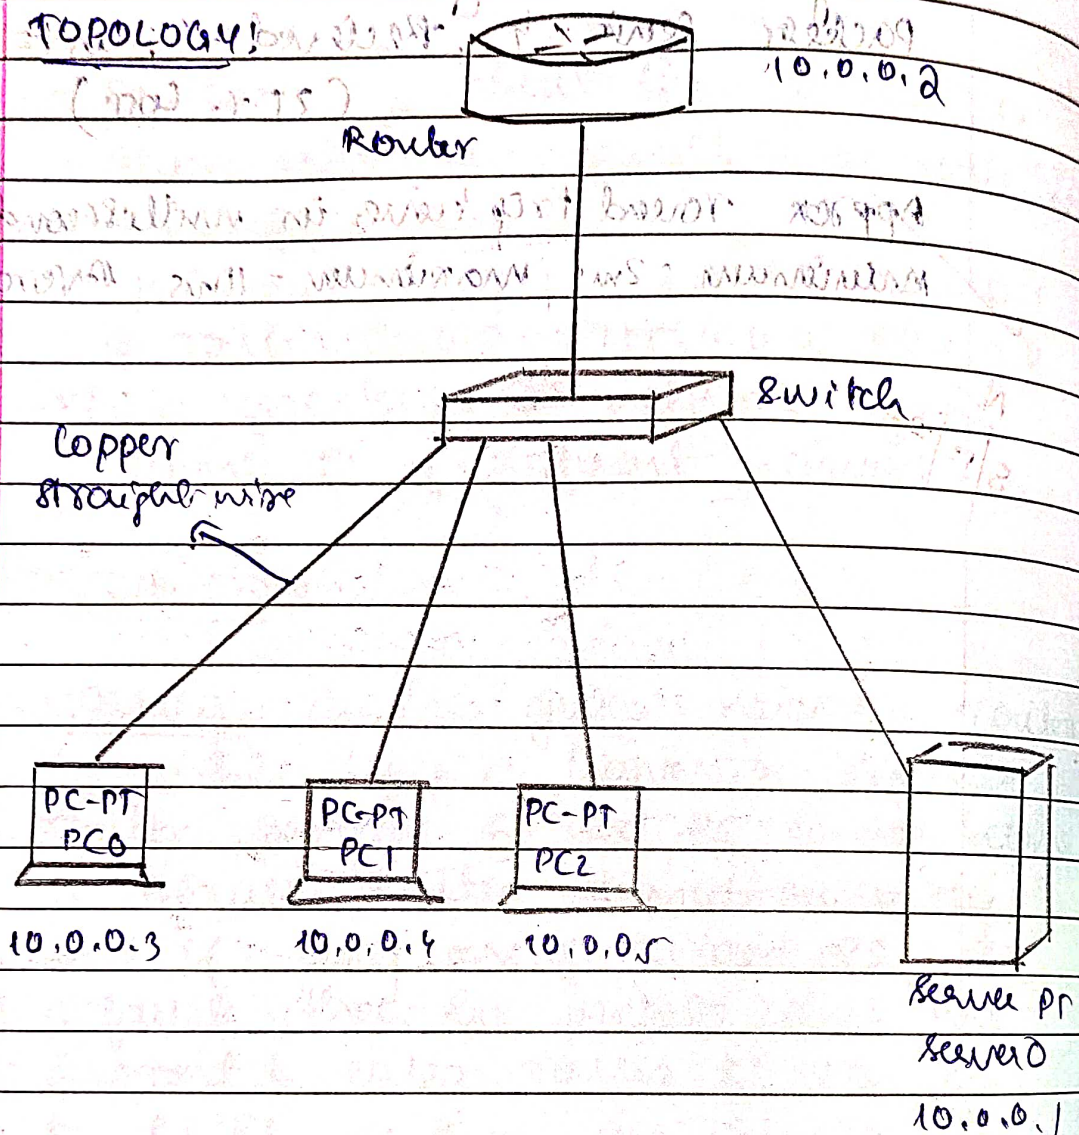 TOPOLOGY!
10.0.0.2
Router
Switch
Copper
straight-wire
PC-PT
PC0
PC-PT
PC1
PC-PT
PC2
10.0.0.3
10.0.0.4
10.0.0.5
Server PT
Server0
10.0.0.1